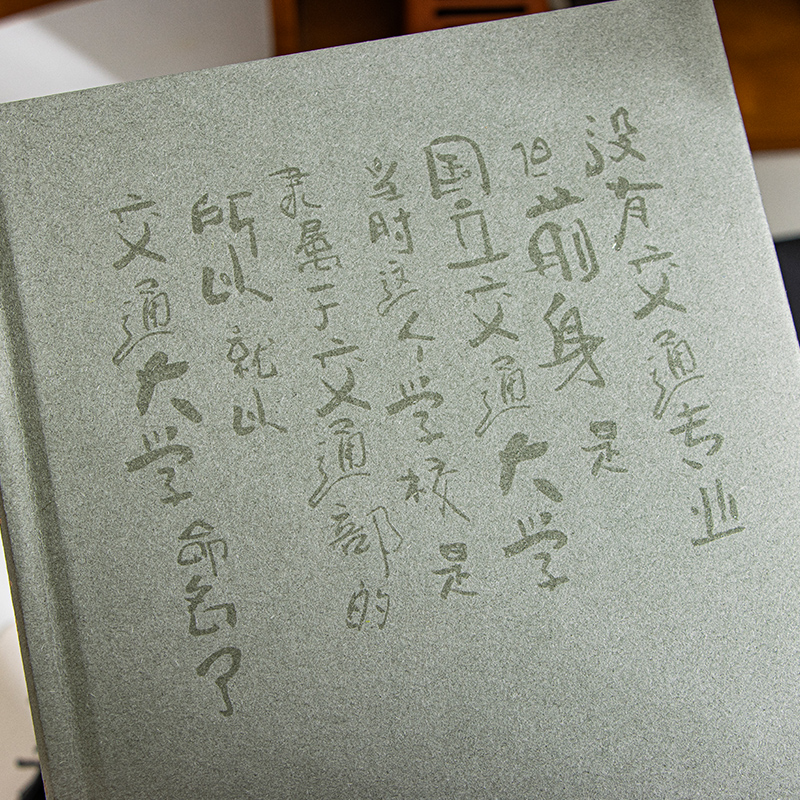 没有交通专业
但前身是
国立交通大学
当时这个学校是
隶属于交通部的
所以就以
交通大学命名了